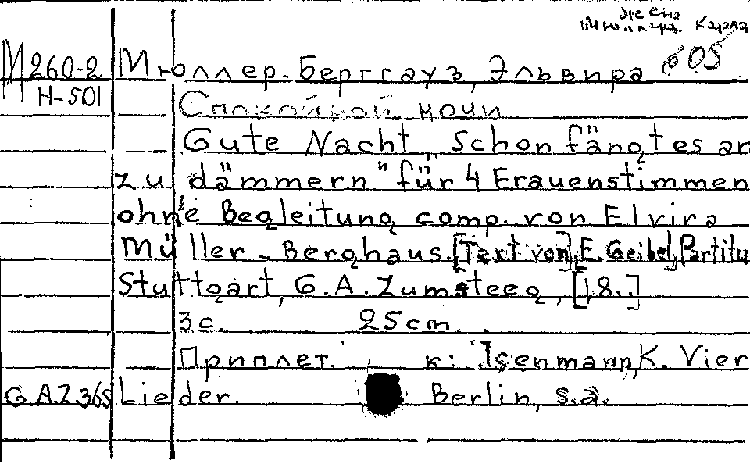 М 260-2 Мюллер-Бергхауз, Эльвира 605
Н-501 Спокойной ночи
Gute Nacht, "Schon fängt es an
zu dämmern" für 4 Frauenstimmen
ohne Begleitung comp. von Elvira
Müller-Berghaus. [Text von], E. Geibel, Partitu
Stuttgart, G. A. Zumsteeg, [18..]
3с. 25cm.
Приплет. к: Isenmann, K. Vier
G.A.Z 365 Lieder. Berlin, s.a.